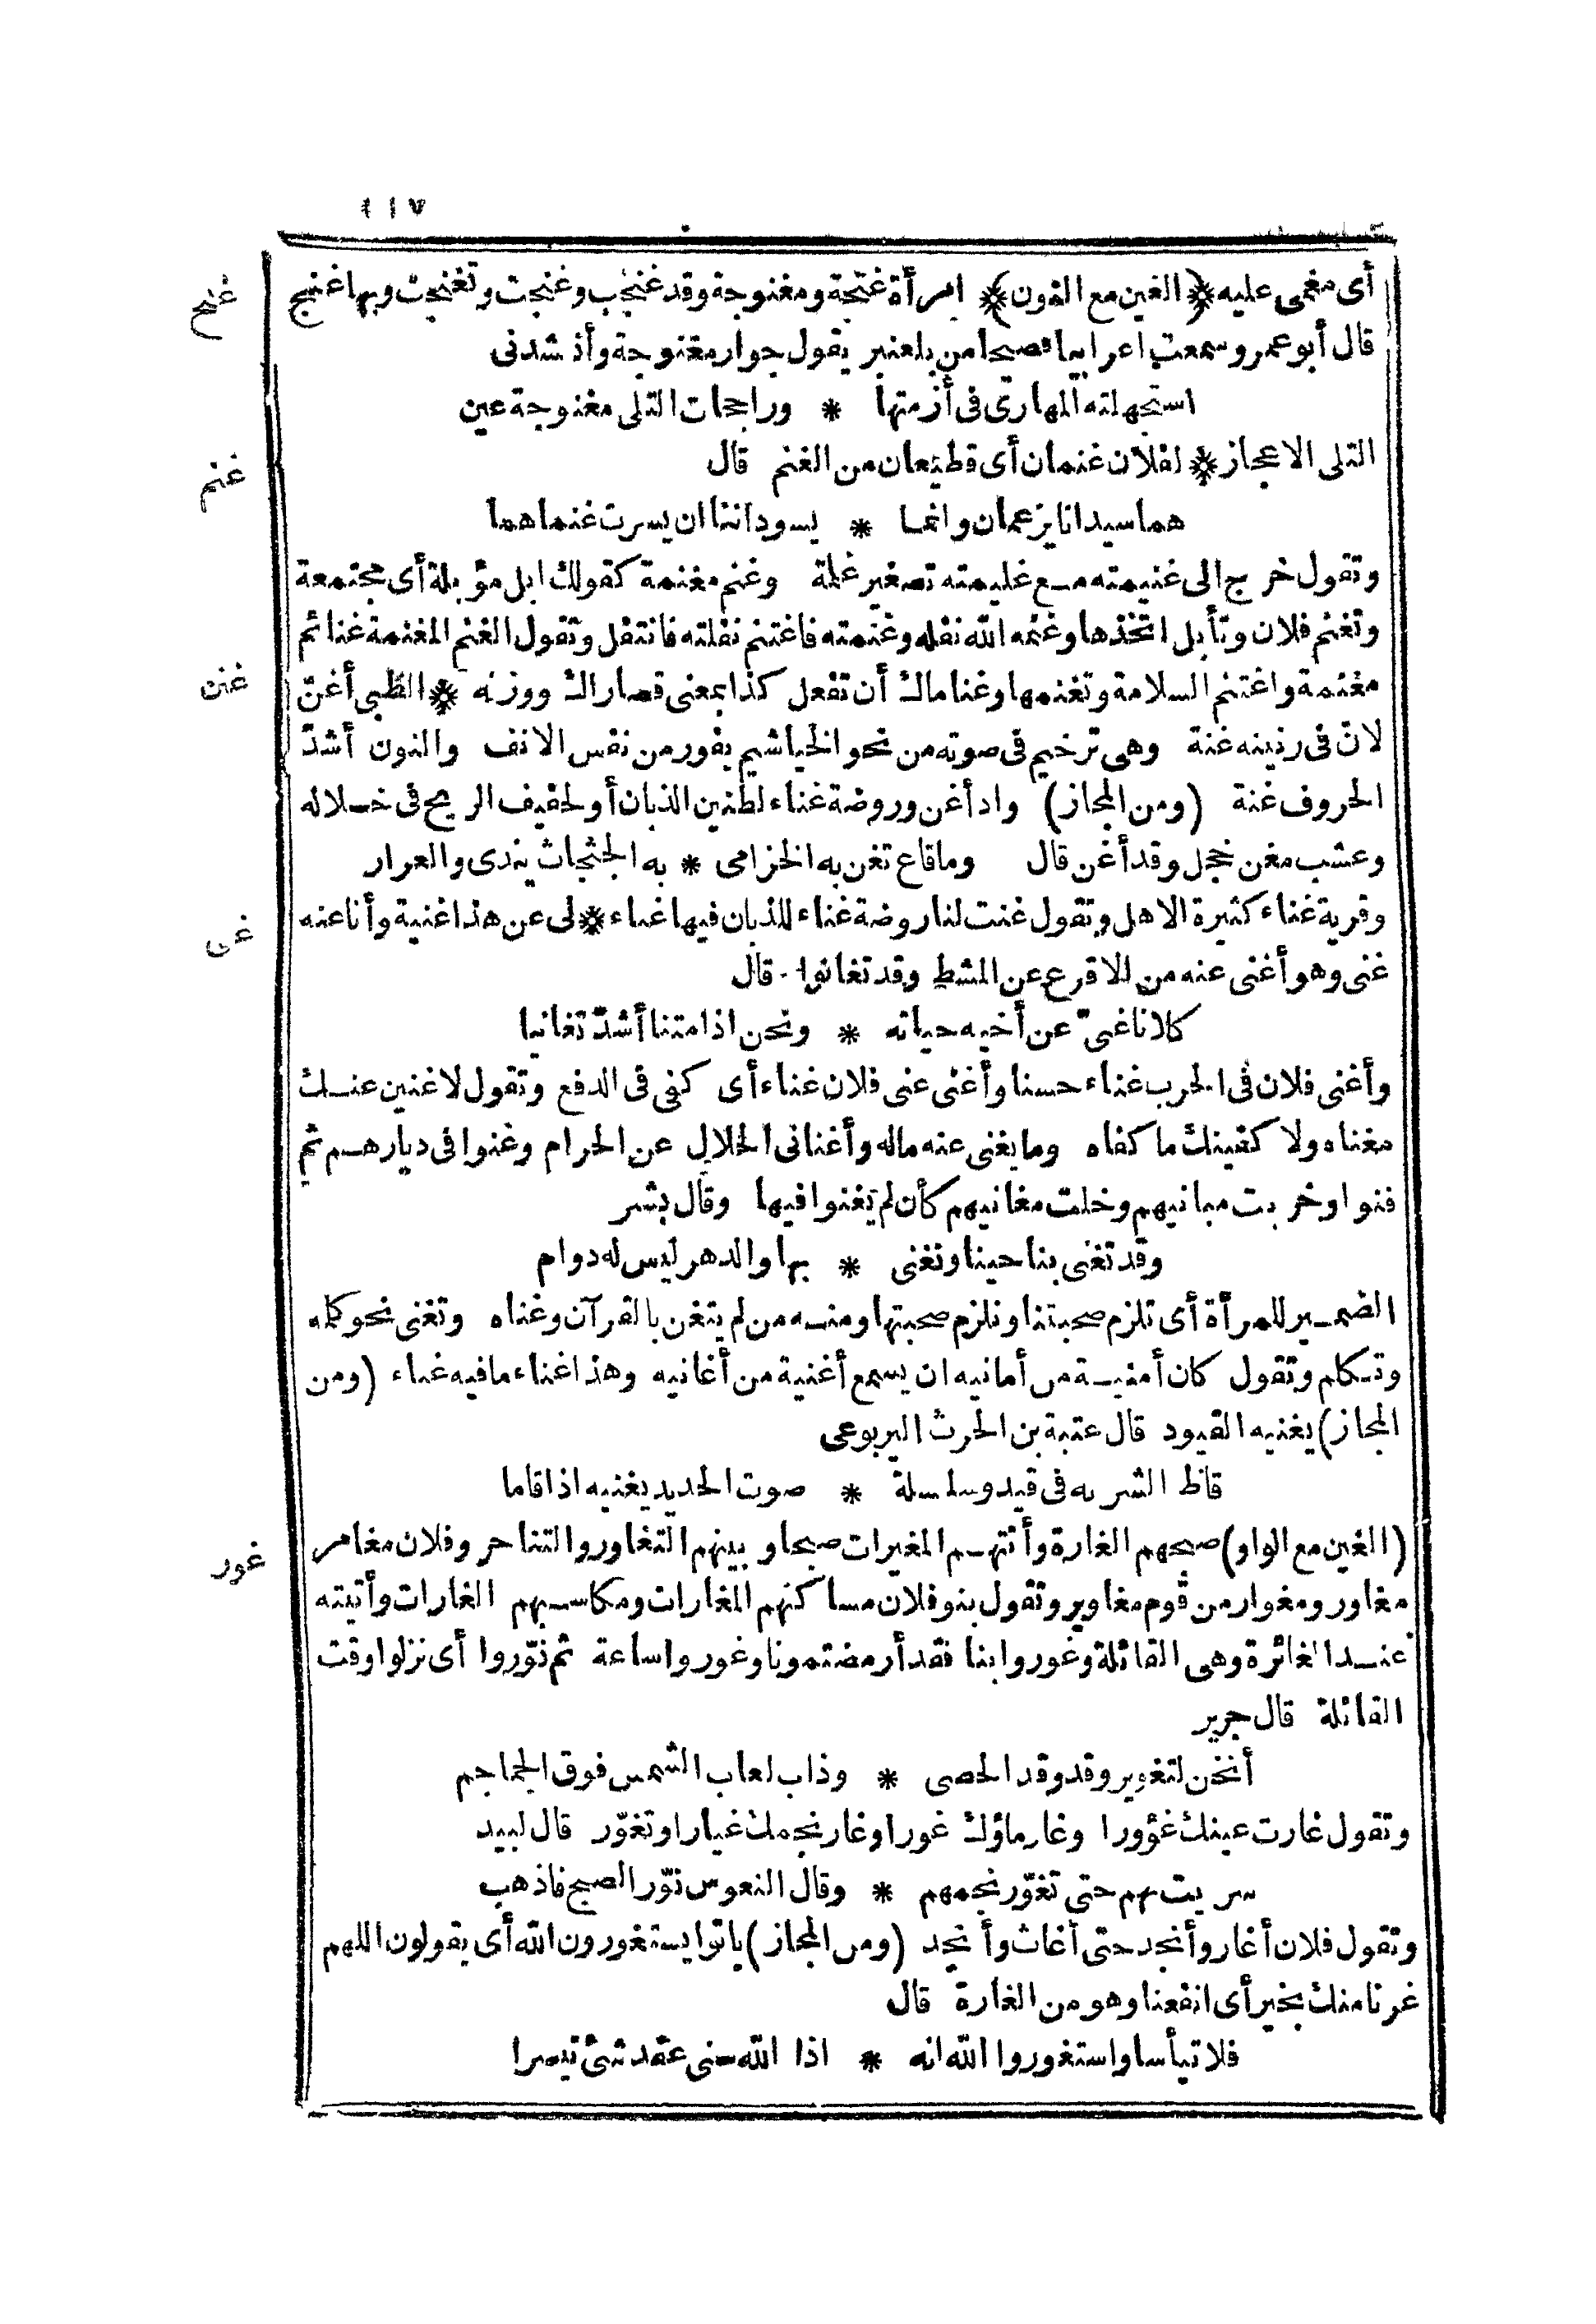 ١١٧
أى مغمى عليه ﴿الغين مع النون﴾ امرأة غنجة ومغنوجة وقد غنجت وغنجت وتغنجت وبها غنج
غنج
قال أبو عمرو سمعت اعرابيا فصيحا من بلعنبر يقول جوار مغنوجة وأنشدنى
استجهلته المهارى فى أزمتها * وراجحات التلى مغنوجة عين
التلى الاعجاز * لفلان غنمان أى قطيعان من الغنم قال
غنم
هما سيدانا يزعمان وانما * يسوداننا ان يسرت غنماهما
وتقول خرج الى غنيمته مع غليمته تصغير غلمة وغنم مغنمة كقولك ابل مؤبلة أى مجتمعة
وتغنم فلان وتأبل اتخذها وغنمه الله نفله وغنمته فاغتنم نفلته فانتفل وتقول الغنم المغنمة غنائم
مغنمة واغتنم السلامة وتغنمها وغناماك أن تفعل كذا بمعنى قصاراك ووزنه * الظبى أغنّ
غنن
لانّ فى رنينه غنة وهى ترخيم فى صوته من نحو الخياشيم يفور من نفس الانف والنون أشدّ
الحروف غنة (ومن المجاز) واد أغن وروضة غناء لطنين الذبان أو لحفيف الريح فى خلاله
وعشب مغن خجل وقد أغن قال وما قاع تغن به الخزامى * به الجثجاث يندى والعرار
وقرية غناء كثيرة الاهل وتقول غنت لنا روضة غناء للذبان فيها غناء * لى عن هذا غنية وأنا عنه
غنى
غنى وهو أغنى عنه من الاقرع عن المشط وقد تغانوا قال
كلانا غنىّ عن أخيه حياته * ونحن اذا متنا أشدّ تغانيا
وأغنى فلان فى الحرب غناء حسنا وأغنى عنى فلان غناء أى كفى فى الدفع وتقول لاغنين عنك
مغناه ولا كفينك ما كفاه وما يغنى عنه ماله وأغنانى الحلال عن الحرام وغنوا فى ديارهم ثم
فنوا وخربت مبانيهم وخلت مغانيهم كأن لم يغنوا فيها وقال بشر
وقد تغنى بنا حينا ونغنى * بها والدهر ليس له دوام
الضمير للمرأة أى تلزم صحبتنا ونلزم صحبتها ومنه من لم يتغن بالقرآن وغناه وتغنى نحو كلمه
وتكلم وتقول كان أمنية من أمانيه ان يسمع أغنية من أغانيه وهذا غناء ما فيه غناء (ومن
المجاز) يغنيه القيود قال عتبة بن الحرث اليربوعى
قاظ الشربه فى قيد وسلسلة * صوت الحديد يغنيه اذا قاما
(الغين مع الواو) صبحهم الغارة وأتتهم المغيرات صبحا وبينهم التغاور والتناحر وفلان مغامر
غور
مغاور ومغوار من قوم مغاوير وتقول بنو فلان مساكنهم المغارات ومكاسبهم الغارات وأتيته
عند الغائرة وهى القائلة وغوروا بنا فقد أرمضتمونا وغوروا ساعة ثم نوّروا أى نزلوا وقت
القائلة قال جرير
أنخن لتغوير وقد وقد الحصى * وذاب لعاب الشمس فوق الجماجم
وتقول غارت عينك غؤورا وغار ماؤك غورا وغار نجمك غيارا وتغوّر قال لبيد
سريت بهم حتى تغوّر نجمهم * وقال النعوس نوّر الصبح فاذهب
وتقول فلان أغار وأنجد حتى أغاث وأنجد (ومن المجاز) باتوا يستغورون الله أى يقولون اللهم
غرنا منك بخير أى انفعنا وهو من الغارة قال
فلا تيأسا واستغوروا الله انه * اذا الله سنى عقد شئ تيسرا